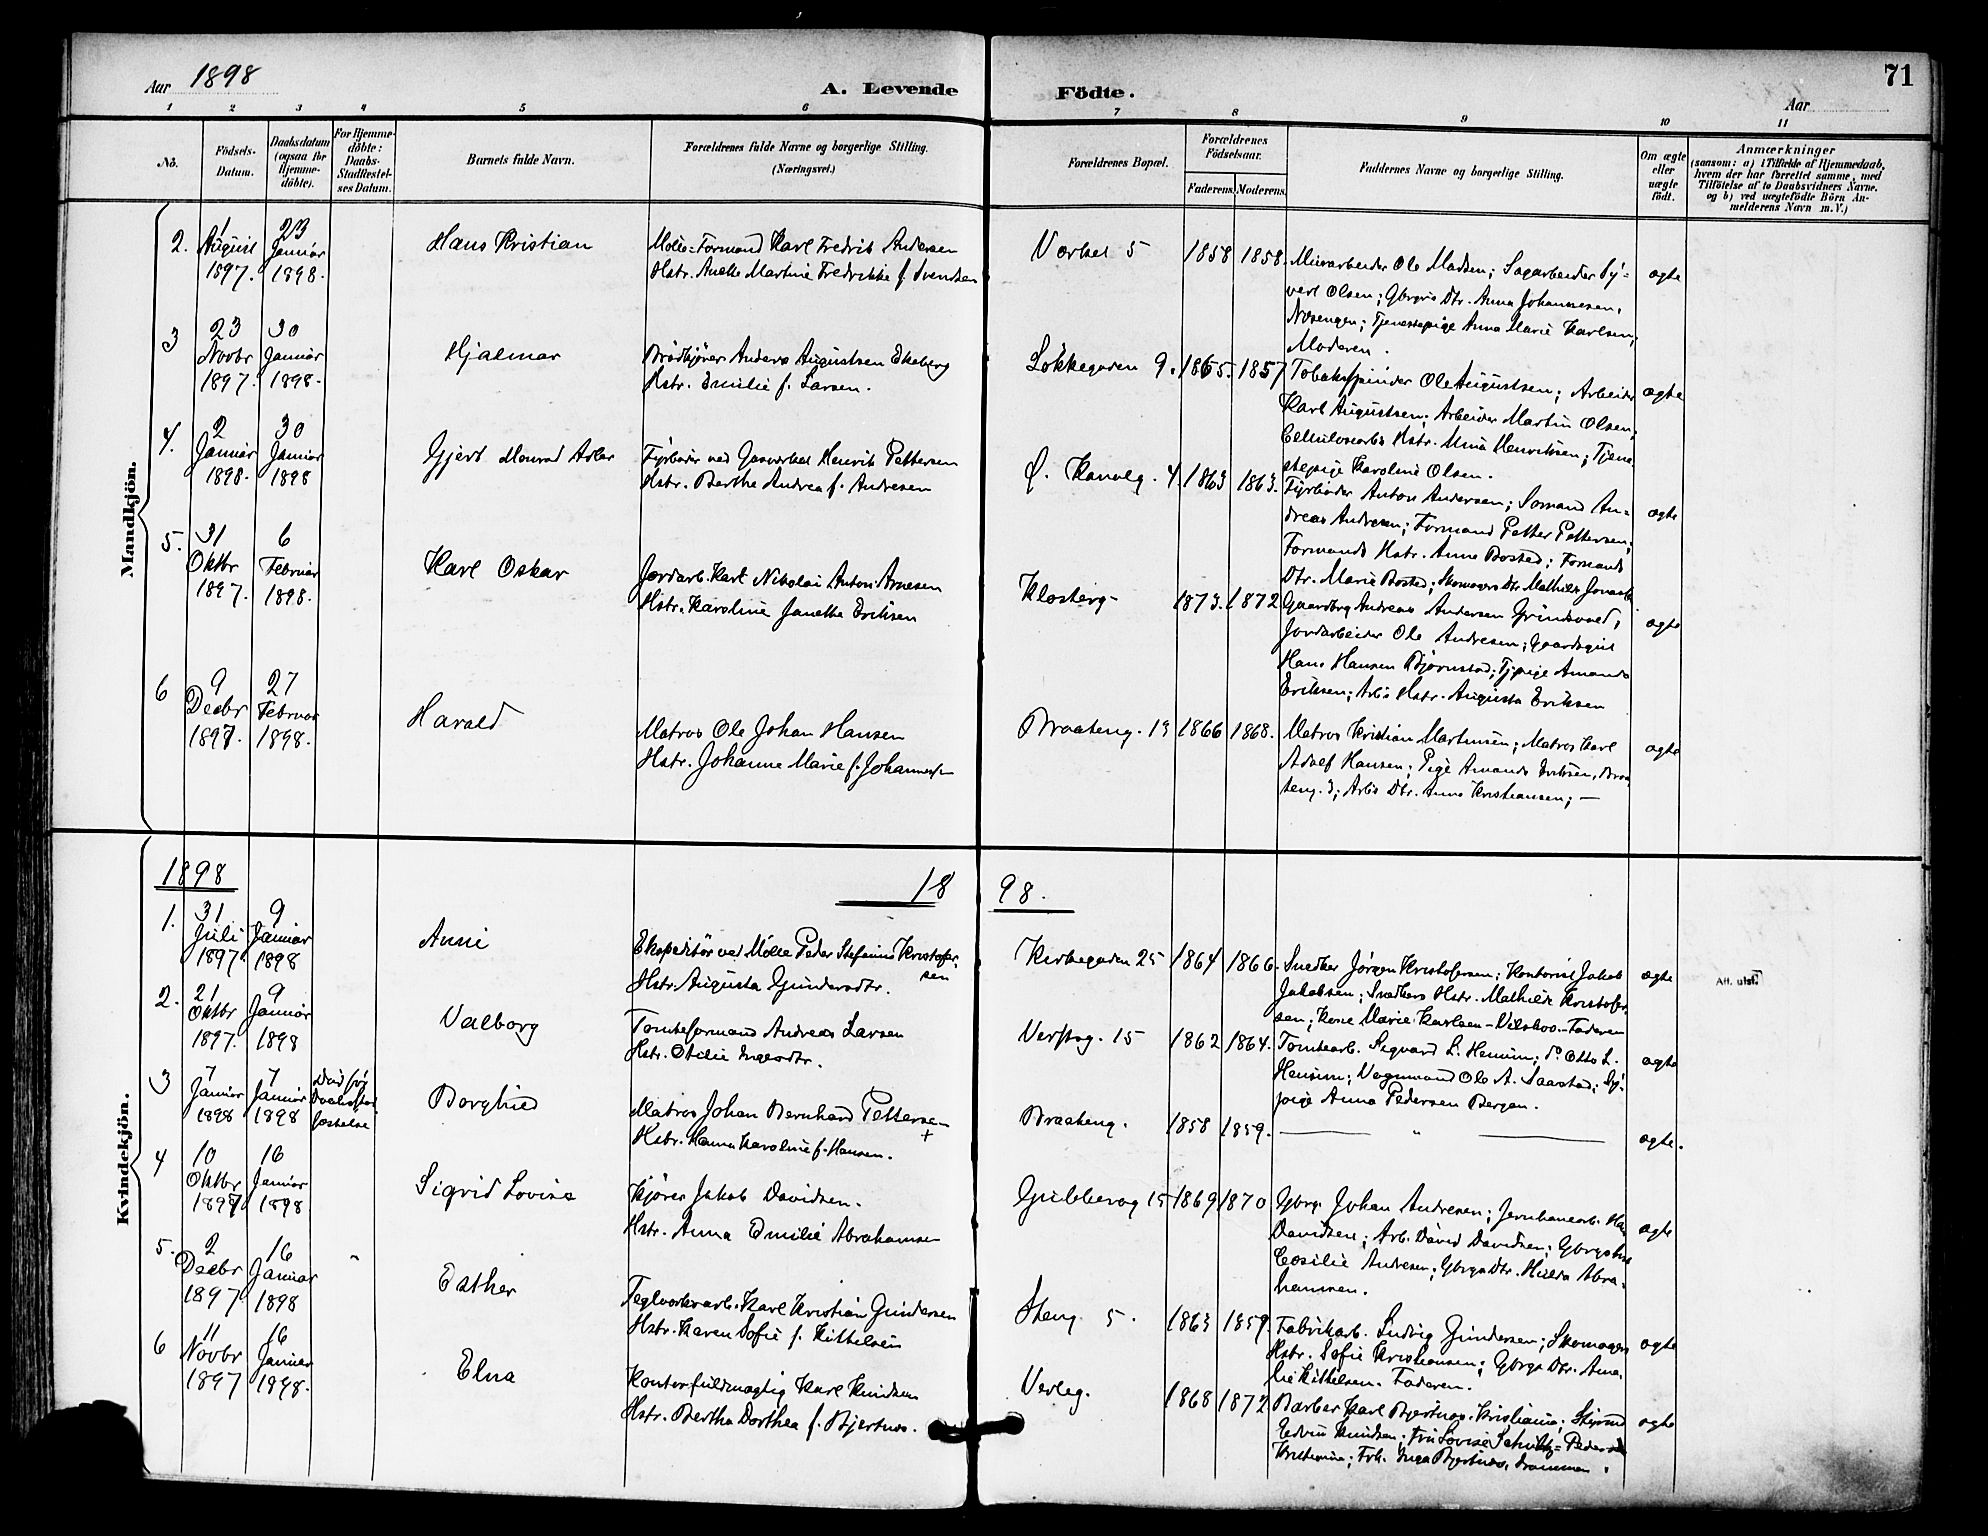 71
Aar 1898
A. Levende Födte.
Aar
1 2 3 4 5 6 7 8 9 10 11
No.
Födsels-Datum.
Daabsdatum (ogsaa for Hjemme-döbte).
For Hjemme-döbte: Daabs-Stadfæstel-ses Datum.
Barnets fulde Navn.
Forældrenes fulde Navne og borgerlige Stilling.
(Næringsvei.)
Forældrenes Bopæl.
Forældrenes Födselsaar.
Faderens. Moderens.
Faddernes Navne og borgerlige Stilling.
Om ægte eller uægte födt.
Anmærkninger
(saasom: a) i Tilfælde af Hjemmedaab,
hvem der har forrettet samme, med
Tilföielse af to Daabsvidners Navne.
og b) ved uægtefödte Börn An-
melderens Navn m. V.)
Mandkjön.
2. 1 August 1897. 23 Januar 1898.
Hans Kristian
Mølle-Formand Karl Fredrik Andersen
Hstr. Anette Martine Fredrikke f. Svendsen
Værket 5 1858 1858.
Murarbeider Ole Madsen; Sagarbeider Sy-
vert Olsen; Gbrgrs Dtr. Anna Johannesen,
Næsengen; Tjenestepige Anna Marie Karlsen;
Moderen.
ægte
3 23 Novbr 1897. 30 Januar 1898.
Hjalmar
Brødkjører Anders Augustsen Ekeberg
Hstr. Emilie f. Larsen.
Løkkegaden 9. 1865. 1857
Tobakspinder Ole Augustsen; Arbeider
Karl Augustsen; Arbeider Martin Olsen;
Cellulosearbs Hstr. Mina Henriksen; Tjene-
stepige Karoline Olsen.
ægte
4. 2 Januar 1898. 30 Januar 1898
Gjert Monrad Adler
Fyrbøder ved Gasverket Henrik Pettersen
Hstr. Berthe Andrea f. Andresen
Ø. Kanalg. 4. 1863 1863.
Fyrbøder Anton Andersen; Sømand An-
dreas Andresen; Formand Petter Pettersen;
Formands Hstr. Anne Bosted; Formands
Dtr. Marie Bosted; Skomagers Dtr Mathilde
ægte
5. 31 Oktbr 1897. 6 Februar 1898.
Karl Oskar
Jordarb. Karl Nikolai Anton Arnesen
Hstr. Karoline Janette Eriksen
Klosterg. 1873. 1872
Gaardbrg Andreas Andersen Grindsvold,
Jordarbeider Ole Andresen; Gaardsgut
Hans Hansen Bjørnstad; Tjpige Amanda
Eriksen; Arbs Hstr. Augusta Eriksen
ægte
6 9 Decbr 1897. 27 Februar 1898.
Harald
Matros Ole Johan Hansen
Hstr. Johanne Marie f. Johannesen
Braateng. 19 1866 1868.
Matros Kristian Martinsen; Matros Karl
Adolf Hansen; Pige Amanda Eriksen, Braa-
teng. 3; Arbs Dtr. Anna Kristiansen; —
ægte
Kvindekjön.
1898
1898.
1. 31 Juli 1897 9 Januar 1898
Anni
Ekspeditør ved Mølle Peder Stefanus Kristofer-
sen
Hstr. Augusta Gundersdtr.
Kirkegaden 25 1864 1866.
Snedker Jørgen Kristofersen; Kontorist Jakob
Jakobsen; Snedkers Hstr. Mathilde Kristofer-
sen; Kone Marie Karlsen - Faderen
ægte
Att. utst.
2. 21 Oktbr 1897. 9 Januar 1898
Valborg
Tomteformand Andreas Larsen
Hstr. Otilie
Verftsg. 15 1862 1864.
Tomtearb. Sigvard L. Hennum; do Otto L.
Hennum; Vognmand Ole A. Saastad; Sy-
pige Anna Pedersen Bergan.
ægte
3 7 Januar 1898 7 Januar 1898
Død før
Daabsstad-
fæstelse
Borghild
Matros Johan Bernhard Pettersen
Hstr. Hanna Karoline f. Hansen. +
Braateng. 1858 1859. — " —
ægte.
4 10 Oktbr 1897 16 Januar 1898
Sigrid Lovise
Kjører Jakob Davidsen.
Hstr. Anna Emilie Abrahamsen
Gubberog 15 1869 1870
Gbrgr Johan Andresen; Jernbanearb. Hans
Davidsen; Arb. David Davidsen; Gbrgs Hstr
Cæsilie Andresen; Gbrgs Dtr. Hulda Abra-
hamsen.
ægte
5. 2 Decbr 1897 16 Januar 1898 "
Esther
Teglverksarb. Karl Kristian Gundersen
Hstr. Karen Sofie f. Kittelsen
Steng. 5. 1863 1859.
Fabrikarb. Ludvig Gundersen; Skomagers
Hstr. Sofie Kristiansen; Gbrgs Dtr. Ama-
lie Kittelsen. Faderen.
ægte
6 11 Novbr 1897 16 Januar 1898.
Elna
Kontorfuldmægtig Karl Knudsen
Hstr. Bertha Dorthea f. Bjertnæs.
Verleg. 1868 1872
Barber Karl Bjertnæs, Kristiania; Styrmd
Edvin Knudsen; Fru Lovise Schultz-Pedersen
Kristiania; Frk. Inga Bjertnæs, Drammen.
ægte